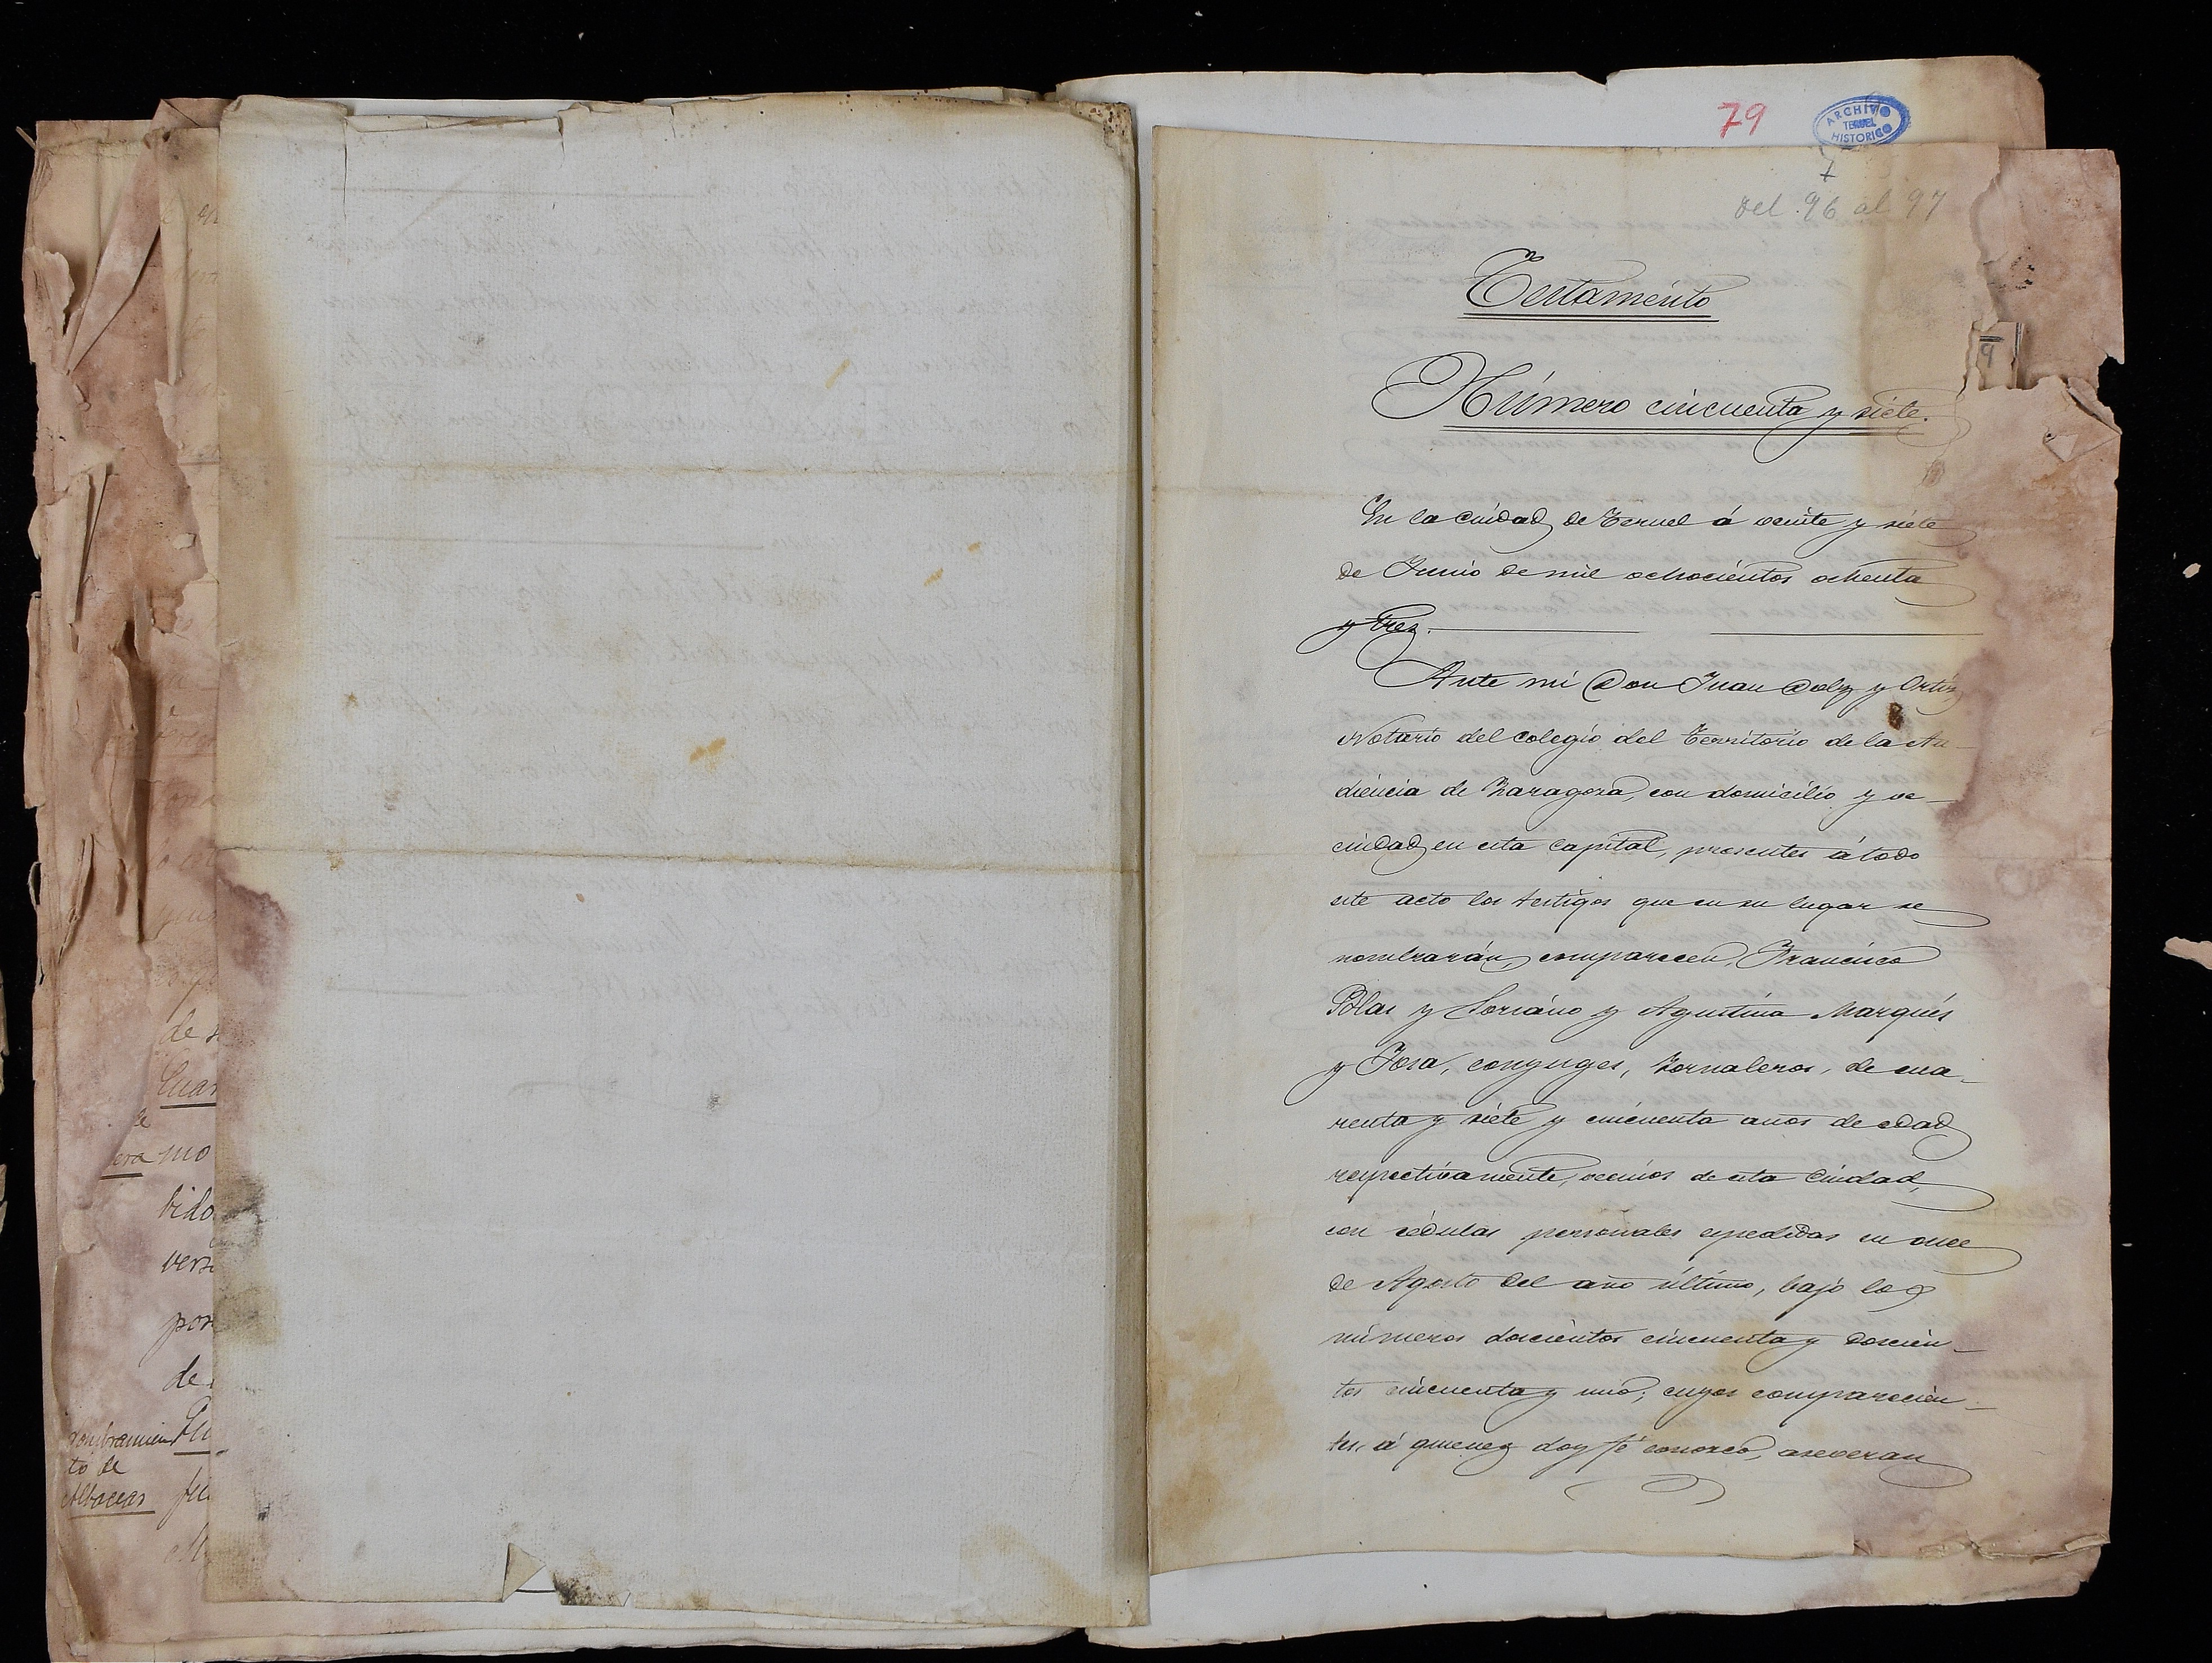 de
Cuar
era mo
bido
vers
por
de
Nombramien
to de
Albaceas
79
ARCHIVO
TERUEL
HISTORICO
del 96 al 97
Testamento
Número cincuenta y siete.
En la Ciudad de Teruel á veinte y siete
de Junio de mil ochocientos ochenta
y tres.
Ante mi Don Juan Dolz y Ortiz
Notario del Colegio del Territorio de la Au-
diencia de Zaragoza, con domicilio y ve-
cindad en esta Capital, presentes á todo
este acto los testigos que en su lugar se
nombrarán, comparecen, Francisco
Blas y Soriano y Agustina Marqués
y Josa, conyuges, Jornaleros, de cua-
renta y siete y cincuenta años de edad
respectivamente, vecinos de esta Ciudad,
con cédulas personales espedidas en once
de Agosto del año último, bajo los
números doscientos cincuenta y doscien-
tos cincuenta y uno; cuyos comparecien-
tes, á quienes doy fé conozco, aseveran